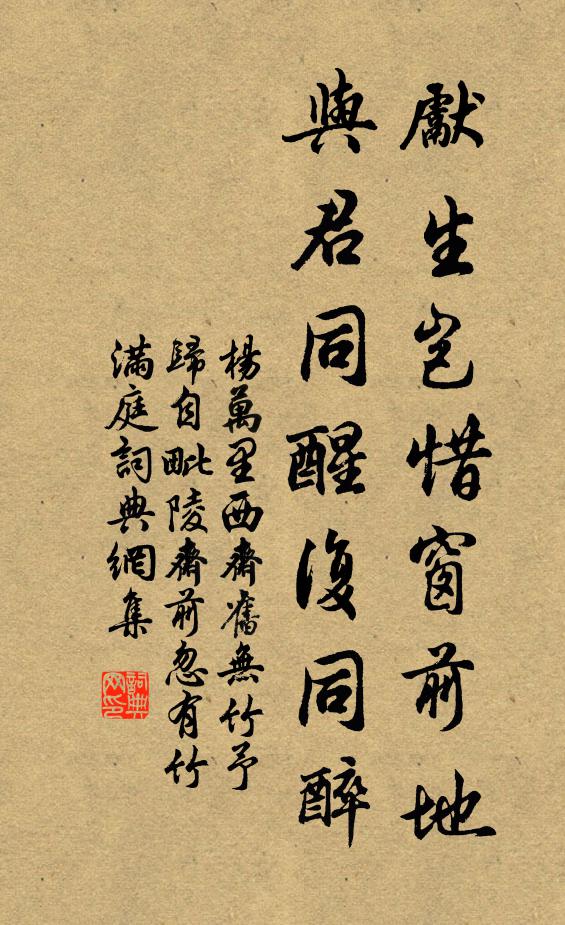 獻生豈惜窗前地
與君同醒復同醉
楊萬里西齋舊無竹予
歸自毗陵齋前忽有竹
滿庭詞典網集
詞典
网印